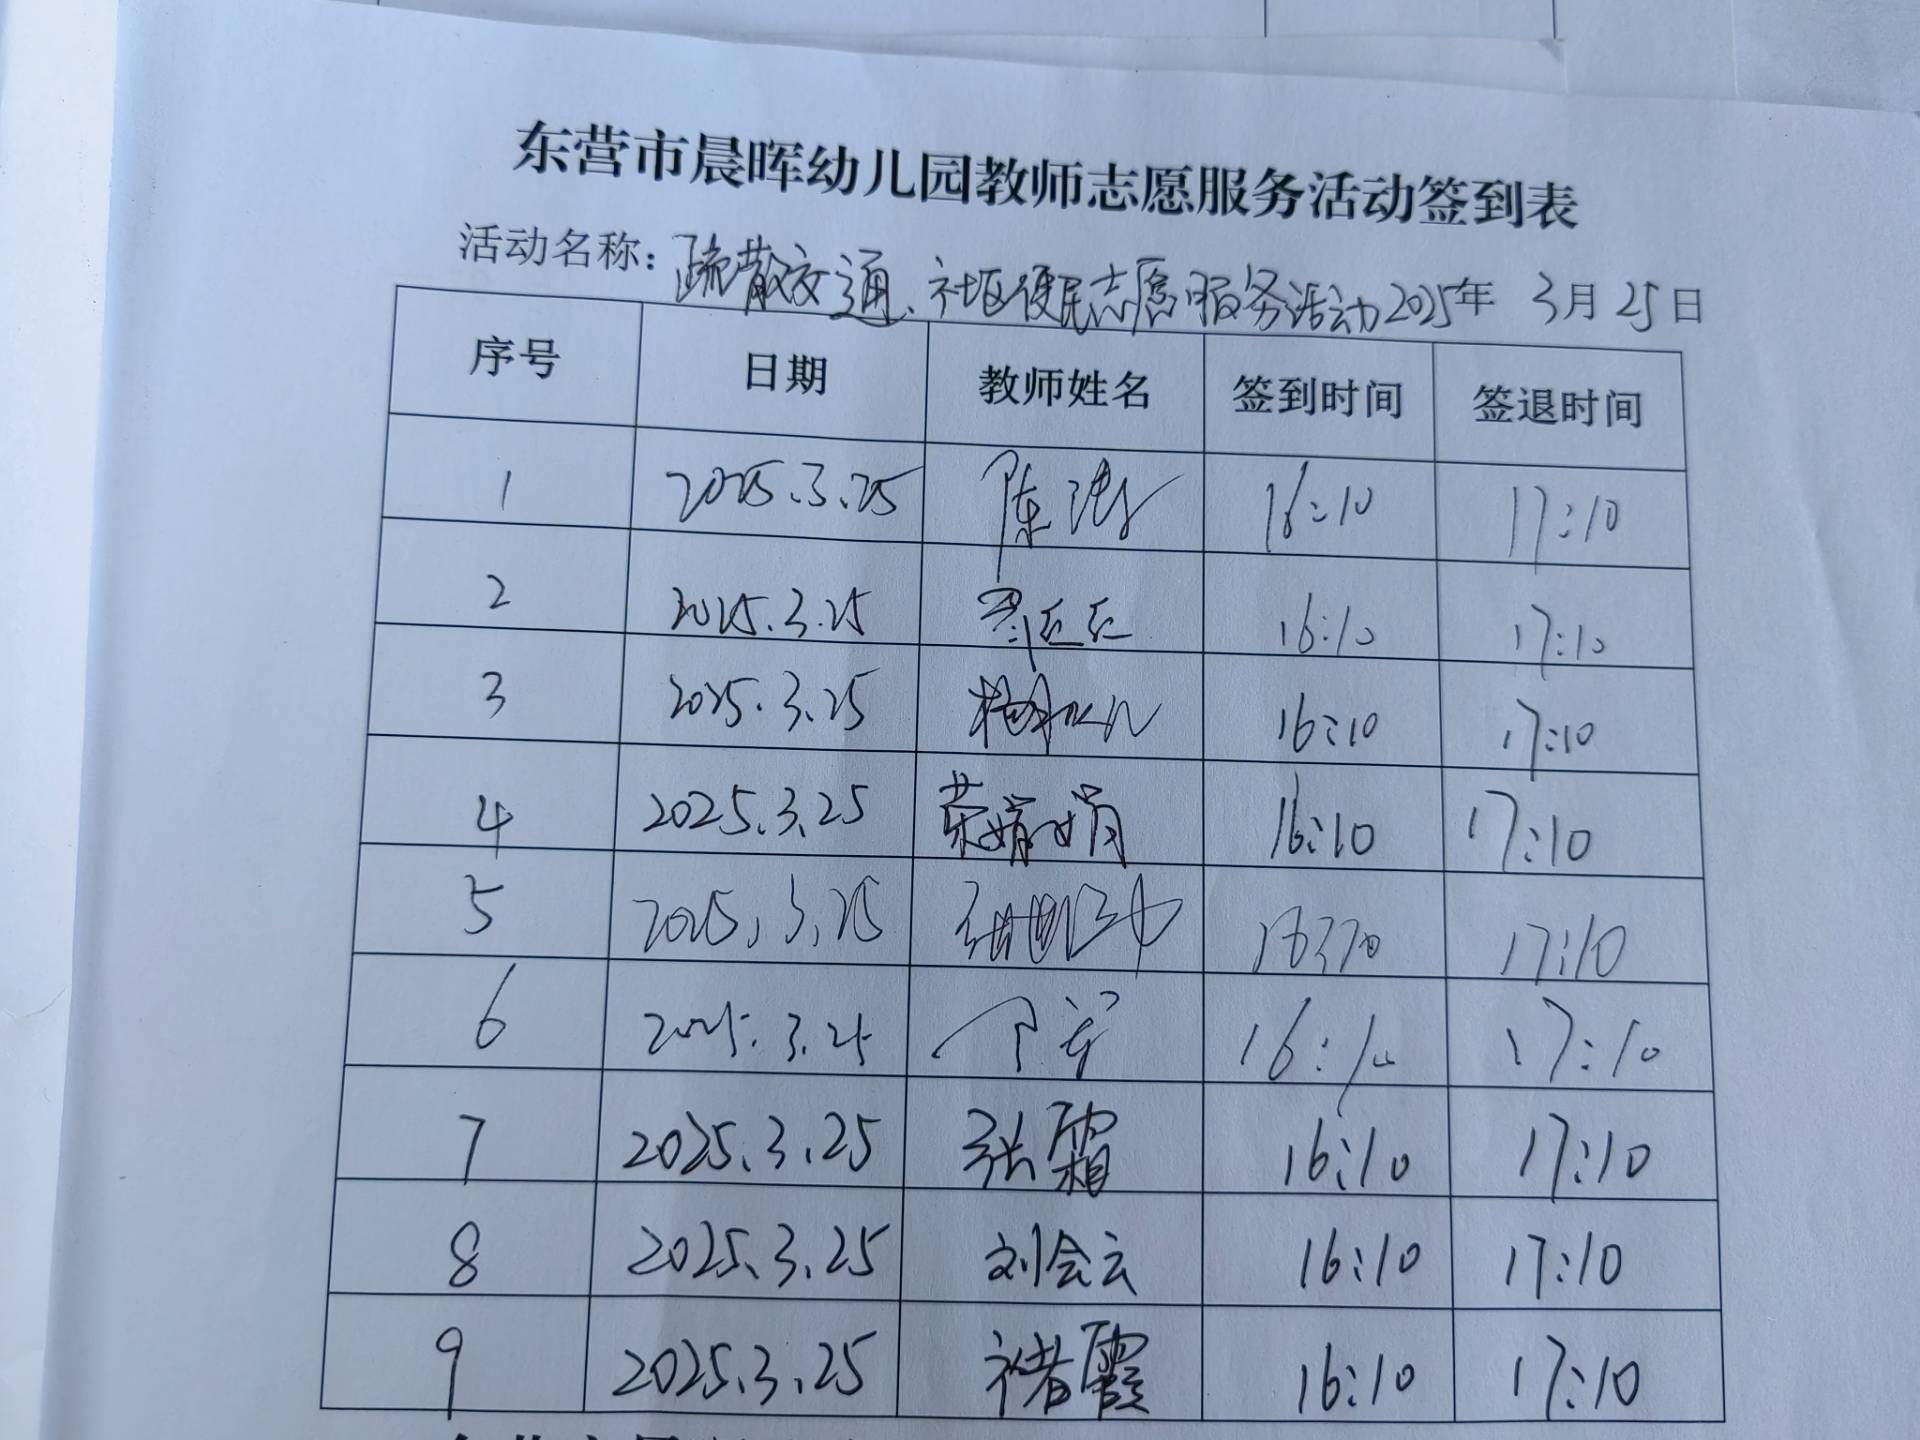 东营市晨晖幼儿园教师志愿服务活动签到表
活动名称：疏散交通、社区便民志愿服务活动2025年 3月25日
序号 日期 教师姓名 签到时间 签退时间
1 2025.3.25 陈 16:10 17:10
2 2025.3.25 16:10 17:10
3 2025.3.25 16:10 17:10
4 2025.3.25 荣娟娟 16:10 17:10
5 2025.3.25 17:10
6 2025.3.25 16:10 17:10
7 2025.3.25 张霜 16:10 17:10
8 2025.3.25 刘会云 16:10 17:10
9 2025.3.25 褚霞 16:10 17:10